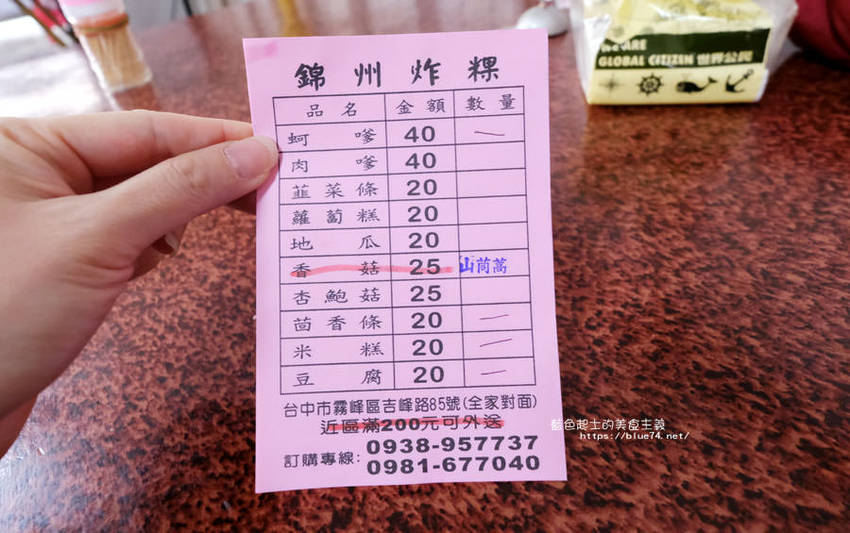 錦州炸粿
品名 金額 數量
蚵嗲 40 一
肉嗲 40
韮菜條 20
蘿蔔糕 20
地瓜 20
香菇 25 山茼蒿
杏鮑菇 25
茴香條 20 一
米糕 20 一
豆腐 20 一
台中市霧峰區吉峰路85號(全家對面)
近區滿200元可外送
訂購專線: 0938-957737
0981-677040
WE ARE
GLOBAL CITIZEN 世界公民
藍色起士的美食主義
https://blue74.net/